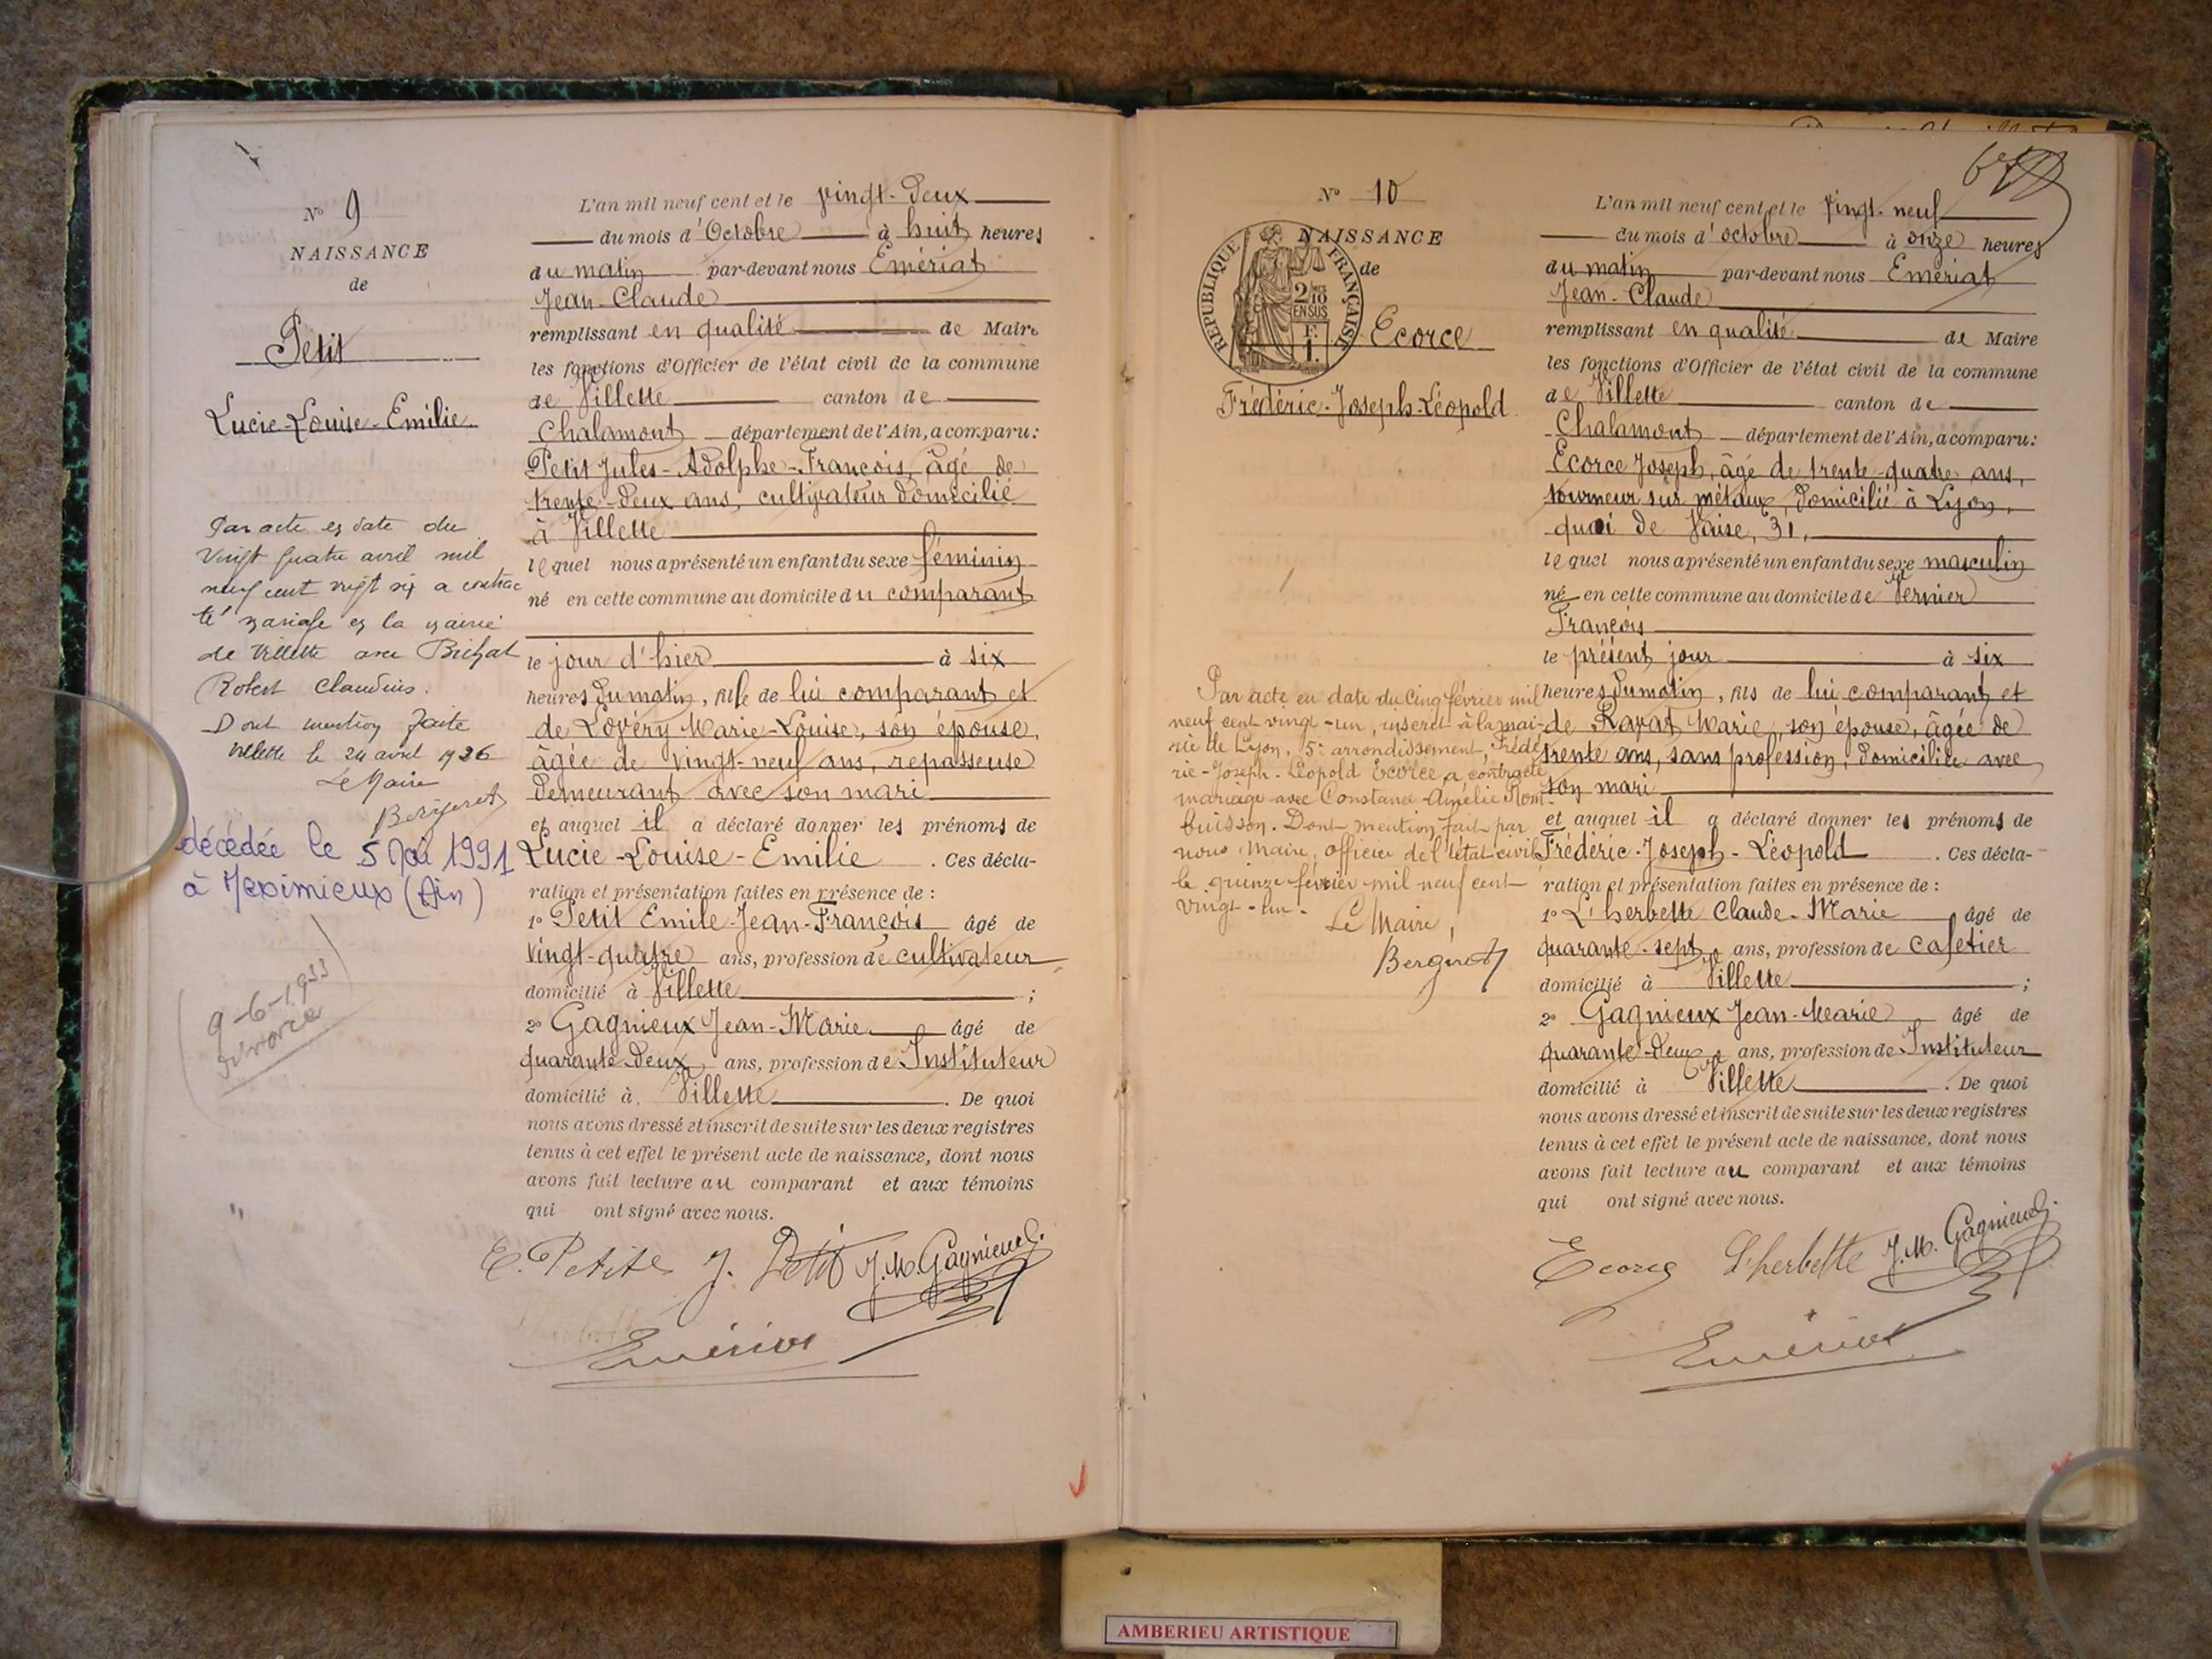 N° 9
NAISSANCE
de
Petit
Lucie-Louise-Emilie
Par acte en date du
vingt quatre avril mil
neuf cent vingt six a contrac
té mariage en la mairie
de Villette avec Bichat
Robert Claudius.
Dont mention faite
Villette le 24 avril 1926
Le Maire
Bergeret
décédée le 5 Mai 1991
à Meximieux (Ain)
9-6-1933
divorce
L'an mil neuf cent et le vingt-deux
du mois d'Octobre à huit heures
du matin par-devant nous Emériat
Jean-Claude
remplissant en qualité de Maire
les fonctions d'Officier de l'état civil de la commune
de Villette canton de
Chalamont département de l'Ain, a comparu:
Petit Jules-Adolphe-François, âgé de
trente-deux ans, cultivateur domicilié
à Villette
lequel nous a présenté un enfant du sexe féminin
né en cette commune au domicile du comparant
le jour d'hier à six
heures du matin, fille de lui comparant et
de Lovéry Marie-Louise, son épouse,
âgée de vingt-neuf ans, repasseuse
demeurant avec son mari
et auquel il a déclaré donner les prénoms de
Lucie-Louise-Emilie. Ces décla-
ration et présentation faites en présence de :
1° Petit Emile-Jean-François âgé de
vingt-quatre ans, profession de cultivateur
domicilié à Villette ;
2° Gagnieux Jean-Marie âgé de
quarante-deux ans, profession de Instituteur
domicilié à Villette. De quoi
nous avons dressé et inscrit de suite sur les deux registres
tenus à cet effet le présent acte de naissance, dont nous
avons fait lecture au comparant et aux témoins
qui ont signé avec nous.
E. Petit J. Petit J.M. Gagnieux
Emériat
N° 10
NAISSANCE
de
RÉPUBLIQUE FRANÇAISE
2/10
EN SUS
1 F.
Ecorce
Frédéric-Joseph-Léopold
Par acte en date du cinq février mil
neuf cent vingt-un, inscrit à la mai-
rie de Lyon, 5e arrondissement, Frédé
ric-Joseph-Léopold Ecorce a contracté
mariage avec Constance Amélie Rom-
buisson. Dont mention fait par
nous Maire, officier de l'état civil
le quinze février mil neuf cent
vingt-un.
Le Maire,
Bergeret
L'an mil neuf cent et le vingt-neuf
du mois d'octobre à onze heures
du matin par-devant nous Emériat
Jean-Claude
remplissant en qualité de Maire
les fonctions d'Officier de l'état civil de la commune
de Villette canton de
Chalamont département de l'Ain, a comparu:
Ecorce Joseph, âgé de trente-quatre ans,
tourneur sur métaux, domicilié à Lyon,
quai de Vaise, 31,
lequel nous a présenté un enfant du sexe masculin
né en cette commune au domicile de Vernier
François
le présent jour à six
heures du matin, fils de lui comparant et
de Ravat Marie, son épouse, âgée de
trente ans, sans profession, domiciliée avec
son mari
et auquel il a déclaré donner les prénoms de
Frédéric-Joseph-Léopold. Ces décla-
ration et présentation faites en présence de :
1° L'herbette Claude-Marie âgé de
quarante-sept ans, profession de cafetier
domicilié à Villette ;
2° Gagnieux Jean-Marie âgé de
quarante-deux ans, profession de Instituteur
domicilié à Villette. De quoi
nous avons dressé et inscrit de suite sur les deux registres
tenus à cet effet le présent acte de naissance, dont nous
avons fait lecture au comparant et aux témoins
qui ont signé avec nous.
Ecorce L'herbette J.M. Gagnieux
Emériat
AMBERIEU ARTISTIQUE